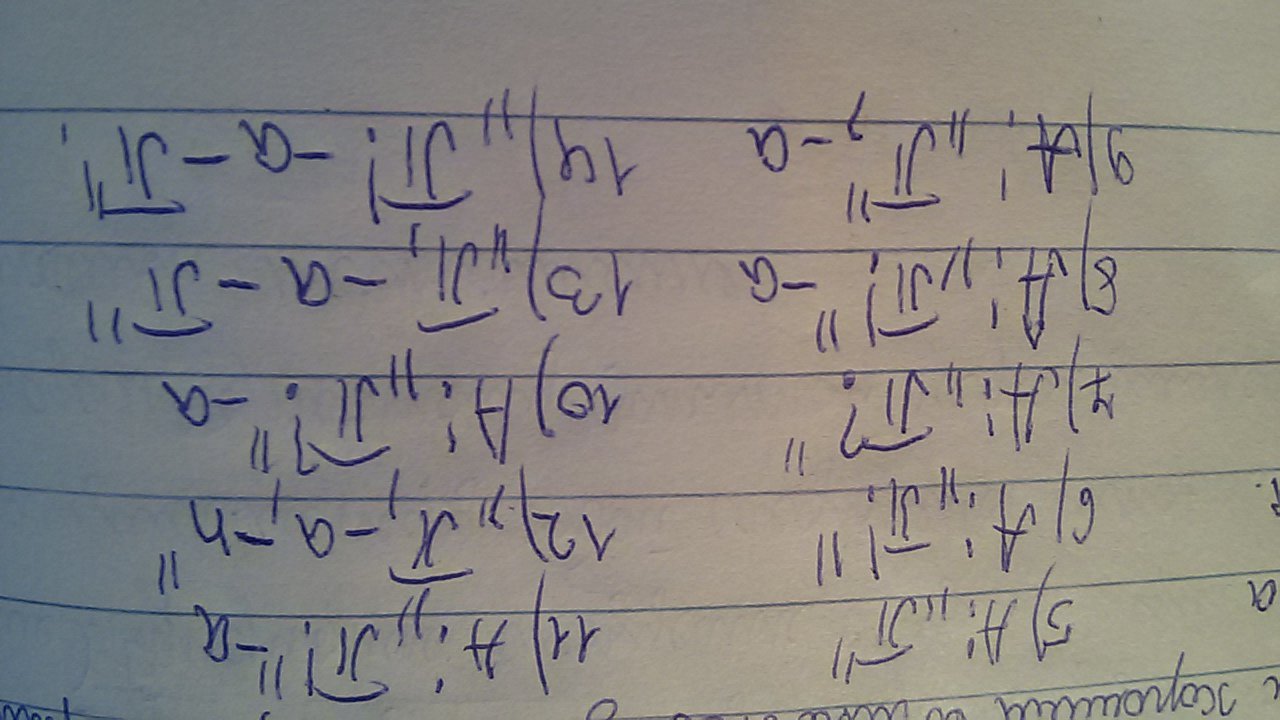 хорошим
а 5) А: „П" 11) А: „П!" – а
6) А: „П!" 12) „П, – а, – п"
7) А: „П?" 10) А: „П?" – а
8) А: „П!" – а 13) „П, – а – П"
9) А: „П", – а 14) „П! – а – П".